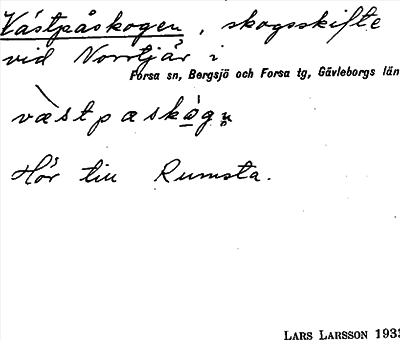 Västpåskogen, skogsskifte
vid Norrtjär i
Forsa sn, Bergsjö och Forsa tg, Gävleborgs län
væstpæskògn̥
Hör till Rumsta.
LARS LARSSON 1933